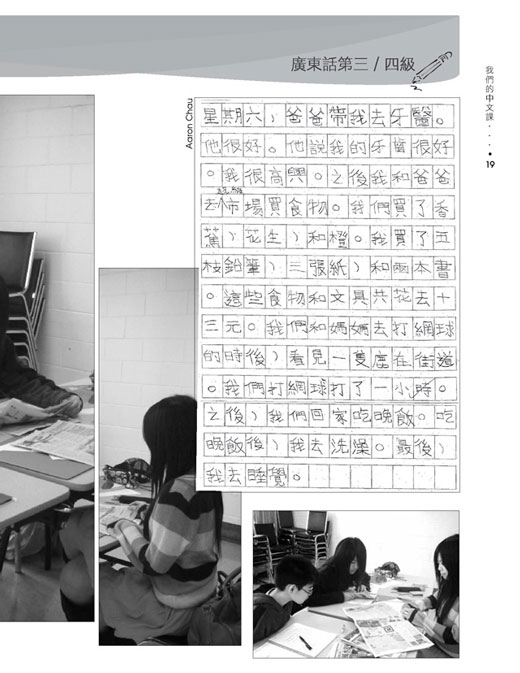 廣東話第三 / 四級
我們的中文課 . . . •
19
Aaron Chau
星期六，爸爸帶我去牙醫。
他很好。他説我的牙齒很好
。我很高興。之後我和爸爸
去市場買食物。我們買了香
蕉，花生，和橙。我買了五
枝鉛筆，三張紙，和兩本書
。這些食物和文具共花去十
三元。我們和媽媽去打網球
的時後，看見一隻鹿在街道
。我們打網球打了一小時。
之後，我們回家吃晚飯。吃
晚飯後，我去洗澡。最後，
我去睡覺。